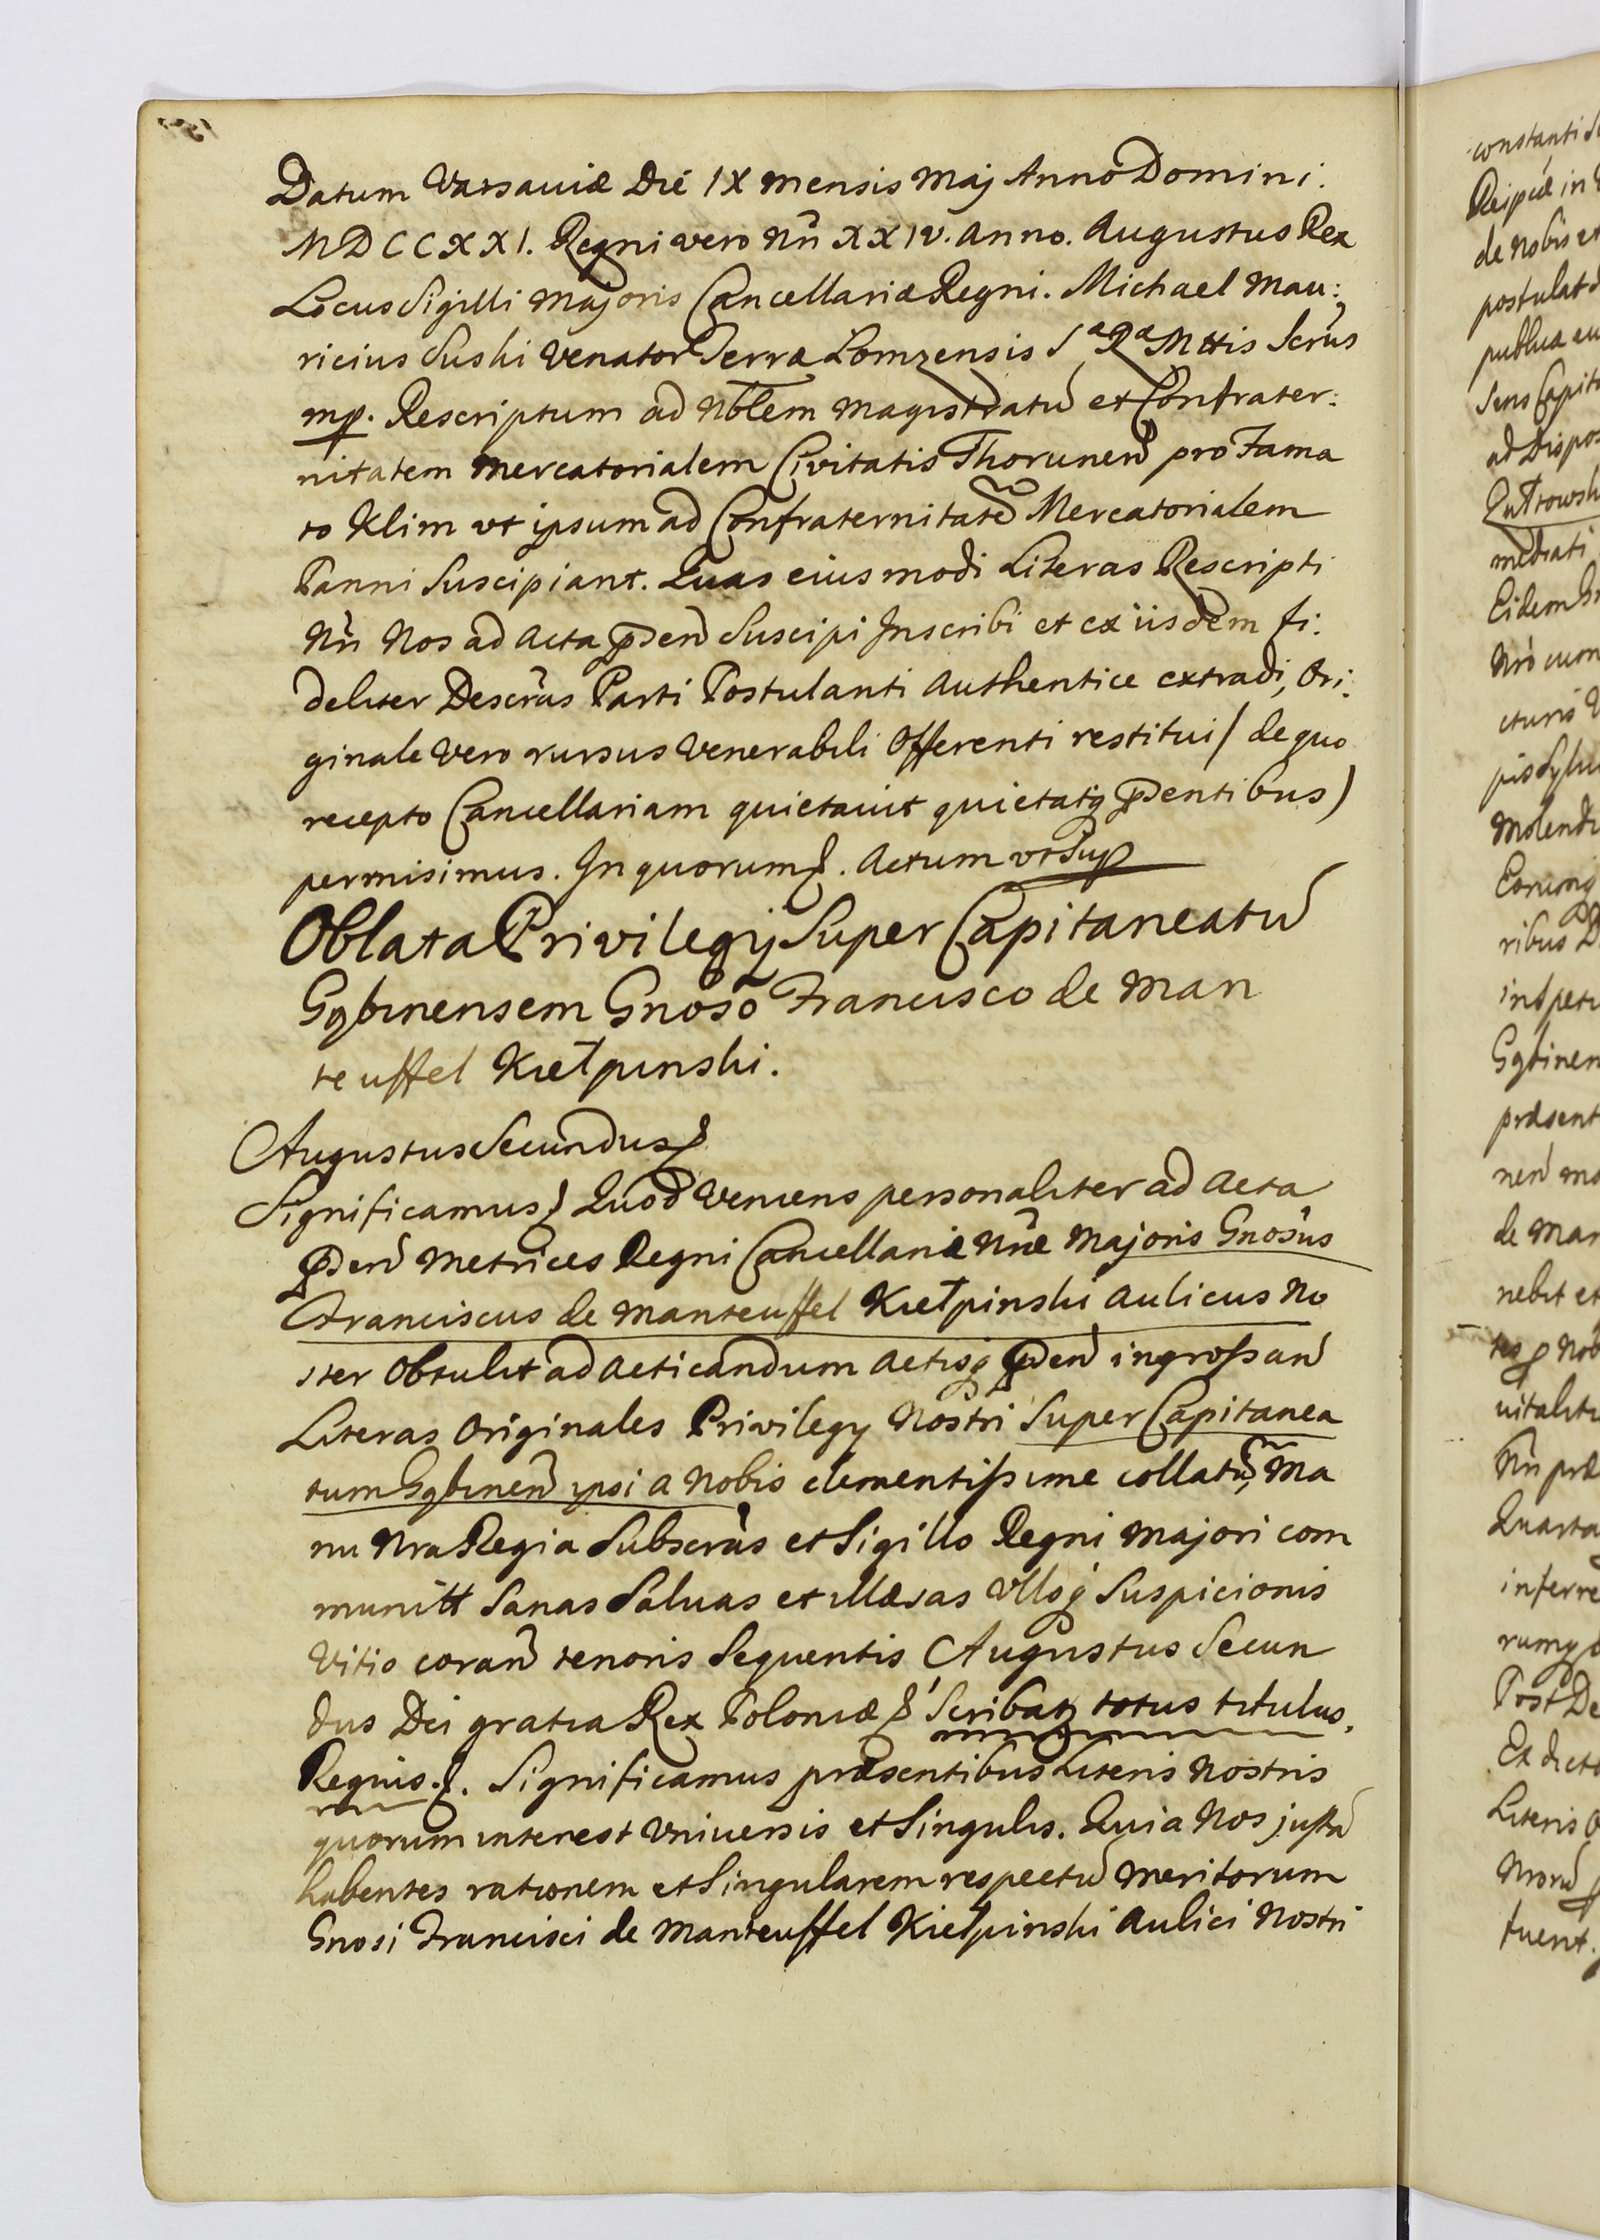 Datum Varsaviæ Die IX mensis Maj Anno Domini.
MDCCXXI. Regni vero Nñ XXIV. Anno. Augustus Rex
Locus Sigilli Majoris Cancellariæ Regni. Michael Mau:
ricius Suski Venator Terræ Lomzensis Sæ Ræ Mttis Secrũs
mp. Rescriptum ad Nobtem Magistratũ et Confrater:
nitatem Mercatorialem Civitatis Thorunen̄ pro Fama
to Klim vt ipsum ad Confraternitatẽ Mercatorialem
Panni Suscipiant. Quas eiusmodi Literas Rescripti
Nñ Nos ad Acta pden̄ Suscipi Inscribi et ex iisdem fi:
deliter Descrãs Parti Postulanti Authentice extradi, Ori:
ginale vero rursus Venerabili Offerenti restitui / de quo
recepto Cancellariam quietavit quietatq pdentibus)
permisimus. In quorum. Actum vt Sup
Oblata Privilegij Super Capitaneatũ
Gybinensem Gnoso Francisco de Man
teuffel Kiełpinski.
Augustus Secundus
Significamus Quod Veniens personaliter ad Acta
pden̄ Metrices Regni Cancellariæ Nræ Majoris Gnosus
Franciscus de Manteuffel Kiełpinski Aulicus No
ster Obtulit ad Acticandum Actisq pden̄ ingrossan̄
Literas Originales Privilegy Nostri Super Capitanea
tum Gybinen̄ ipsi a Nobis clementissime collatũ, Ma
nu Nra Regia Subscrãs et Sigillo Regni Majori com
munitt Sanas Salvas et illæsas Vlloq Suspicionis
Vitio caran̄ tenoris Sequentis Augustus Secun
dus Dei gratia Rex Poloniæ Scribatz totus titulus.
Regius. Significamus præsentibus Literis Nostris
quorum interest Vniversis et Singulis. Quia Nos justã
habentes rationem et Singularem respectũ Meritorum
Gnosi Francisci de Manteuffel Kiełpinski Aulici Nostri